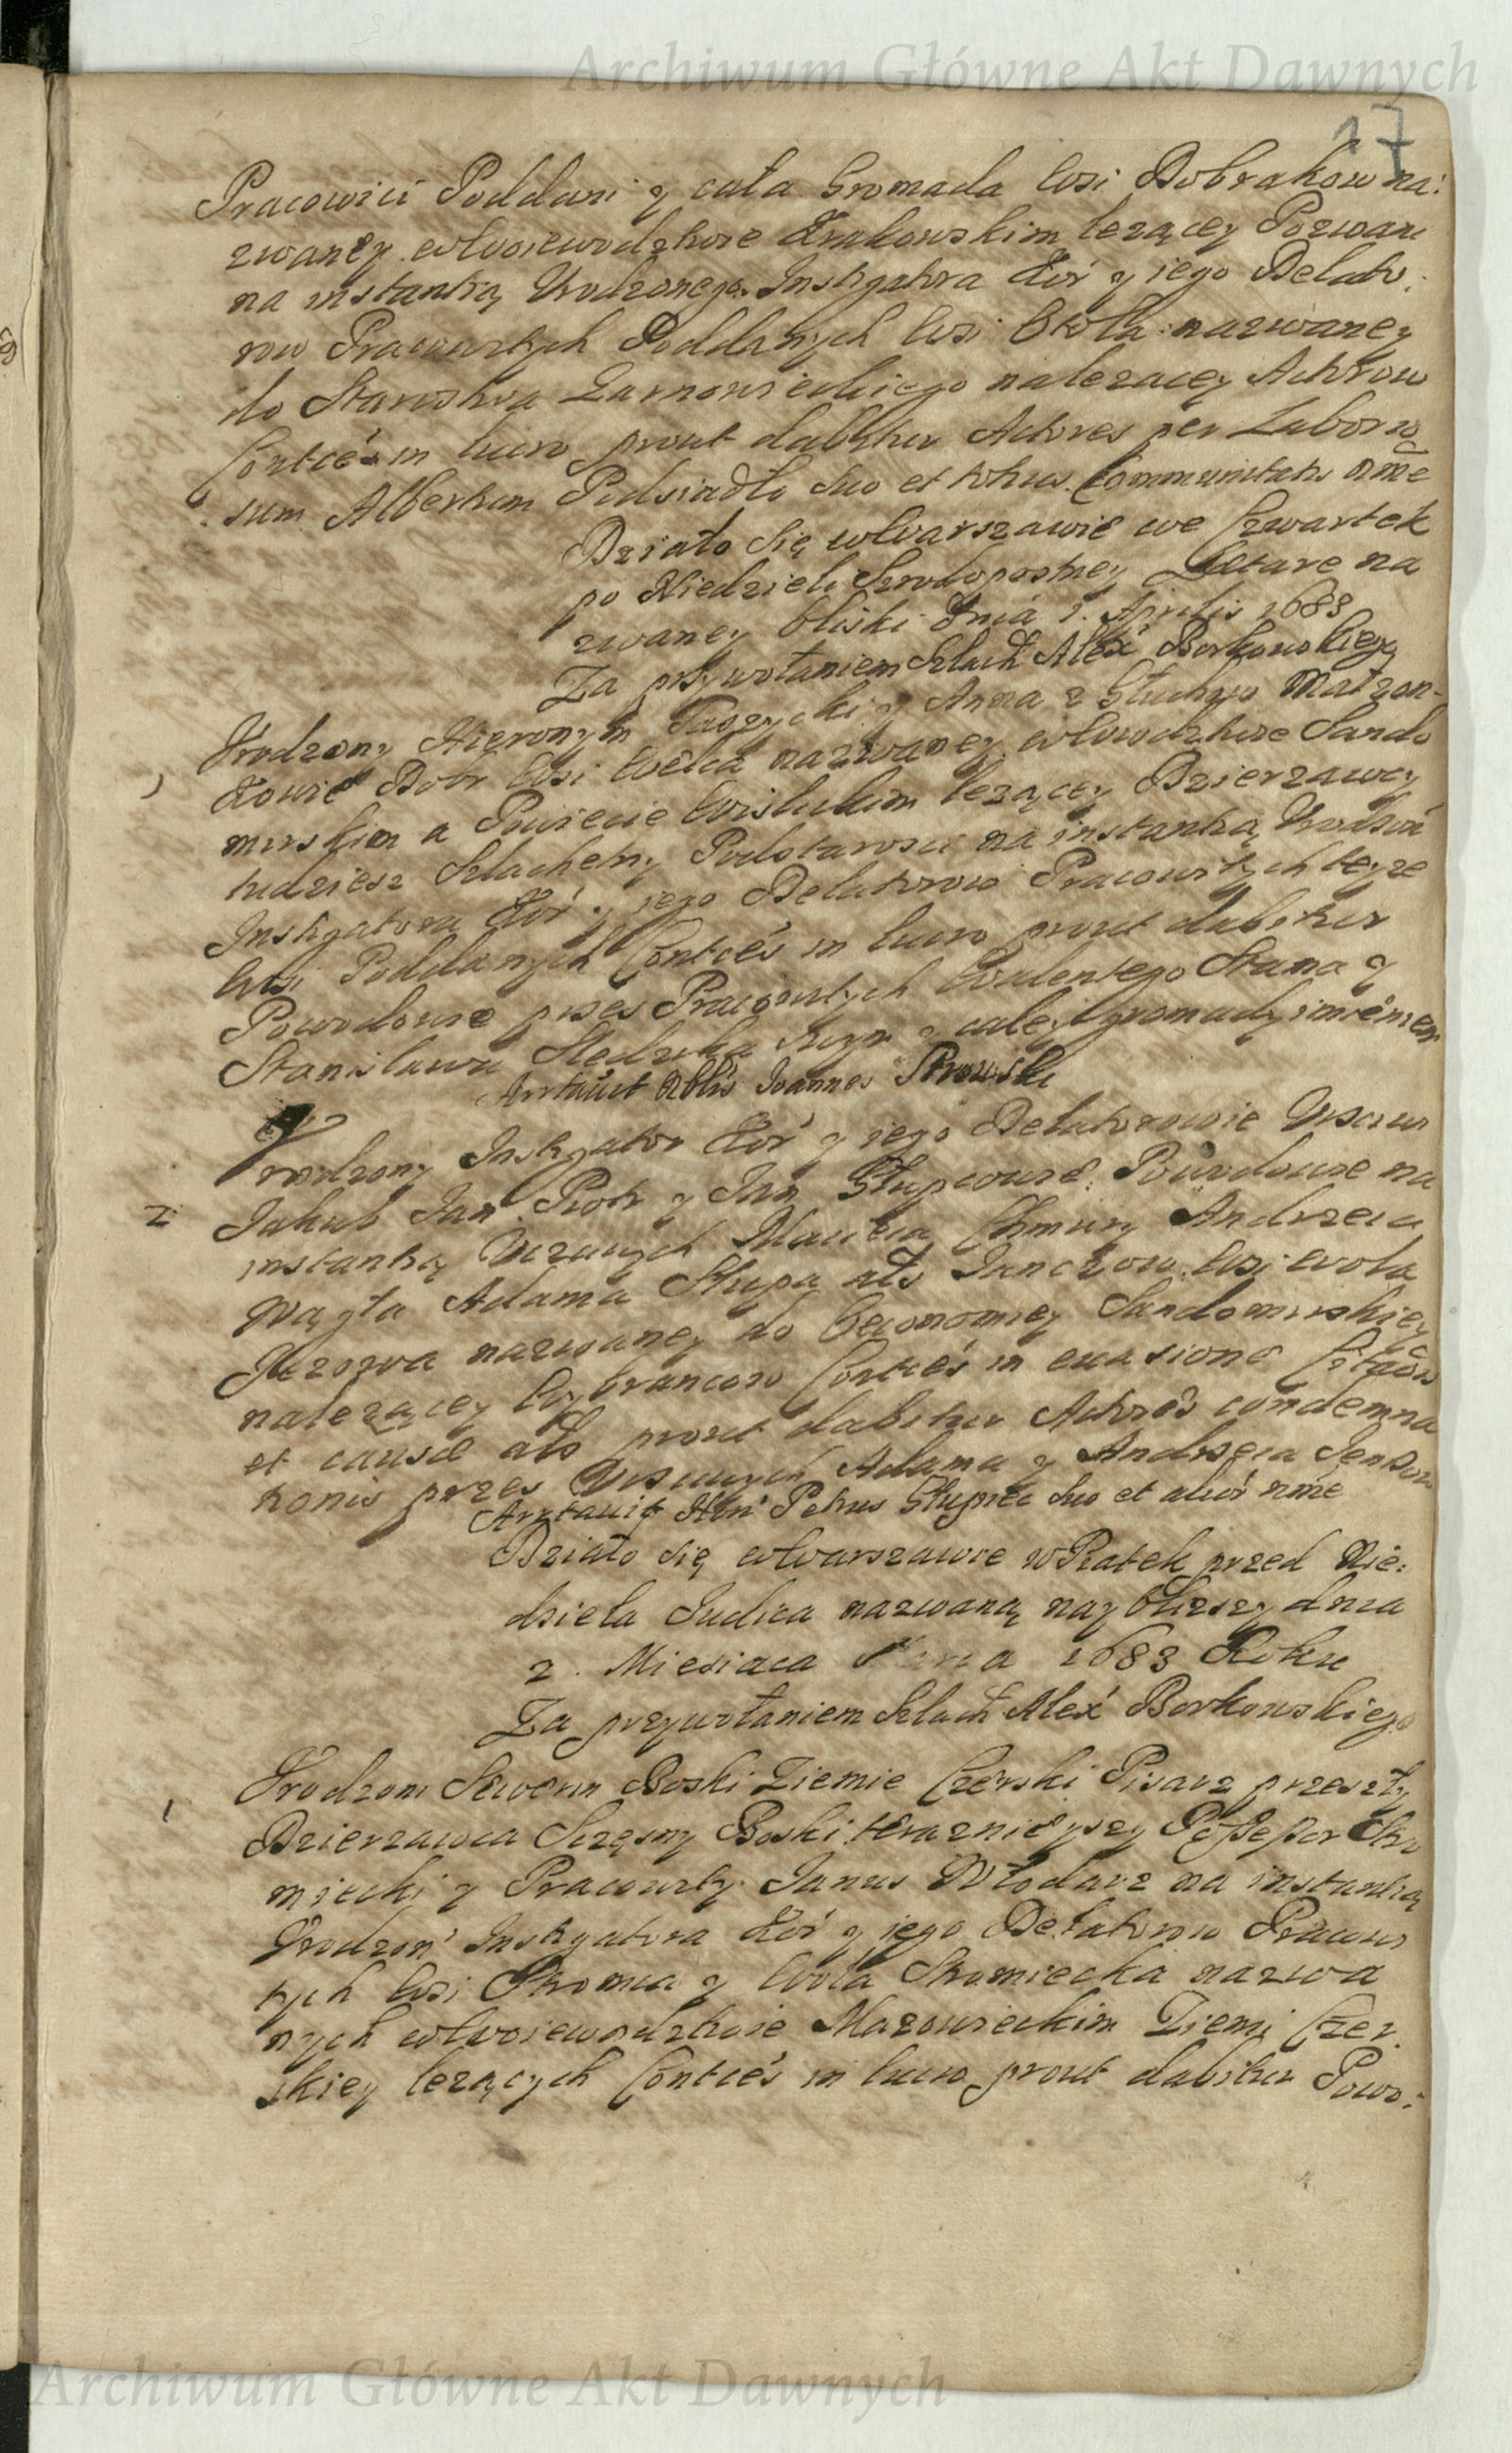 Archiwum Główne Akt Dawnych
17
Pracowici Poddani y cała Gromada Wsi Dobrakow na:
zwaney wWoiewodztwie Krakowskim lezącey Pozwani
na instantią Urodzonego Instigatora Kor y iego Delato:
row Pracowitych Poddanych Wsi nazwaney
do Starostwa Zarnowieckiego nalezacey Actorow
Contces in lucro prout dabitur Actores per Laborio
sum Albertum Podsiadło suo et totius Communitatis nme
Działo się wWarszawie we Czwartek
po Niedzieli Srodopostney Laetare na
zwaney bliski Dnia 1. Aprilis 1683
Za przywołaniem Szlach Alex Borkowskiego
1 Urodzony Hieronym y Anna z Małzon-
kowie Dobr Wsi nazwaney wWowodztwie Sando
mirskim a Powiecie Wislickim lezącey Dzierzawcy
tudziesz Szlachetny Podstarosci na instantią Urodzon
Instigatora Kor y iego Delatorow Pracowitych teyze
Wsi Poddanych Contces in lucro prout dabitur
Powodowie przes Pracowitych Walentego Stama y
Stanisława swym y całey gromady imieniem
Arrtauit Nblis Joannes
2 Urodzony Instigator Kor y iego Delatorowie Usciwi
Jakub Jan Piotr y Jan Słupcowie Powodowie na
instantią Uczciwych Macieia Chmury Andrzeia
Adama Słupa als Janczow Wsi Wola
nazwaney do Oeconomiey Sandomirskiey
nalezącey Wybrancow Contces in euasione
et causae als prout dabitur Actores condemna
tionis przes Usciwych Adama y Andrzeia
Arrtauit Hon Petrus Słupiec suo et alior nme
Działo się wWarszawie w Piatek przed Nie:
dziela Judica nazwaną nayblizszy dnia
2. Miesiaca 1683 Roku
Za przywołaniem Szlach Alex Borkowskiego
1 Urodzoni Seweryn Boski Ziemie Czerski Pisarz przeszły
Dzierzawca Sczęsny Boski teraznieyszy Possessor Stro
miecki y Pracowity Janus Włodarz na instantią
Urodzon Instigatora Kor y iego Delatorow Pracowi
tych Wsi Stromca y Wola Stromiecka nazwa
nych wWoiewodztwie Mazowieckim Ziemi Czer
skiey lezących Contces in lucro prout dabitur Powo:
Archiwum Główne Akt Dawnych